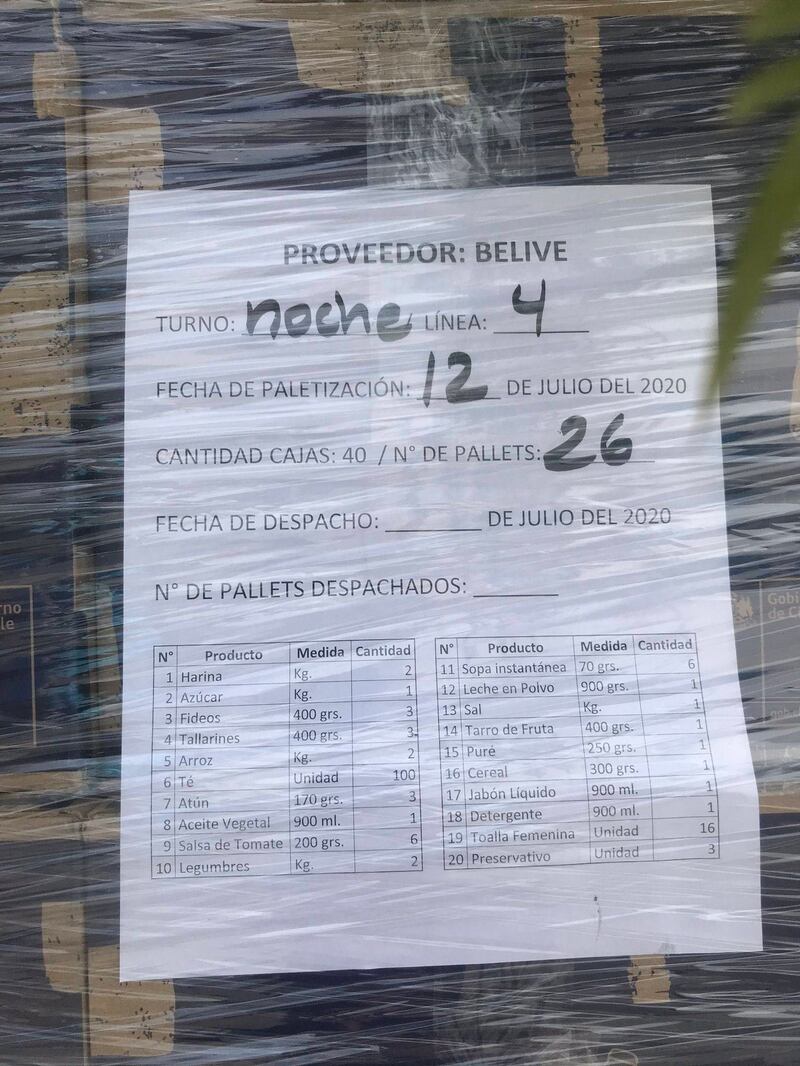 PROVEEDOR: BELIVE
TURNO: noche / LÍNEA: 4
FECHA DE PALETIZACIÓN: 12 DE JULIO DEL 2020
CANTIDAD CAJAS: 40 / N° DE PALLETS: 26
FECHA DE DESPACHO: ________ DE JULIO DEL 2020
N° DE PALLETS DESPACHADOS: _______
N° Producto Medida Cantidad
1 Harina Kg. 2
2 Azúcar Kg. 1
3 Fideos 400 grs. 3
4 Tallarines 400 grs. 3
5 Arroz Kg. 2
6 Té Unidad 100
7 Atún 170 grs. 3
8 Aceite Vegetal 900 ml. 1
9 Salsa de Tomate 200 grs. 6
10 Legumbres Kg. 2
N° Producto Medida Cantidad
11 Sopa instantánea 70 grs. 6
12 Leche en Polvo 900 grs. 1
13 Sal Kg. 1
14 Tarro de Fruta 400 grs. 1
15 Puré 250 grs. 1
16 Cereal 300 grs. 1
17 Jabón Líquido 900 ml. 1
18 Detergente 900 ml. 1
19 Toalla Femenina Unidad 16
20 Preservativo Unidad 3
rno
le
Gobi
de C